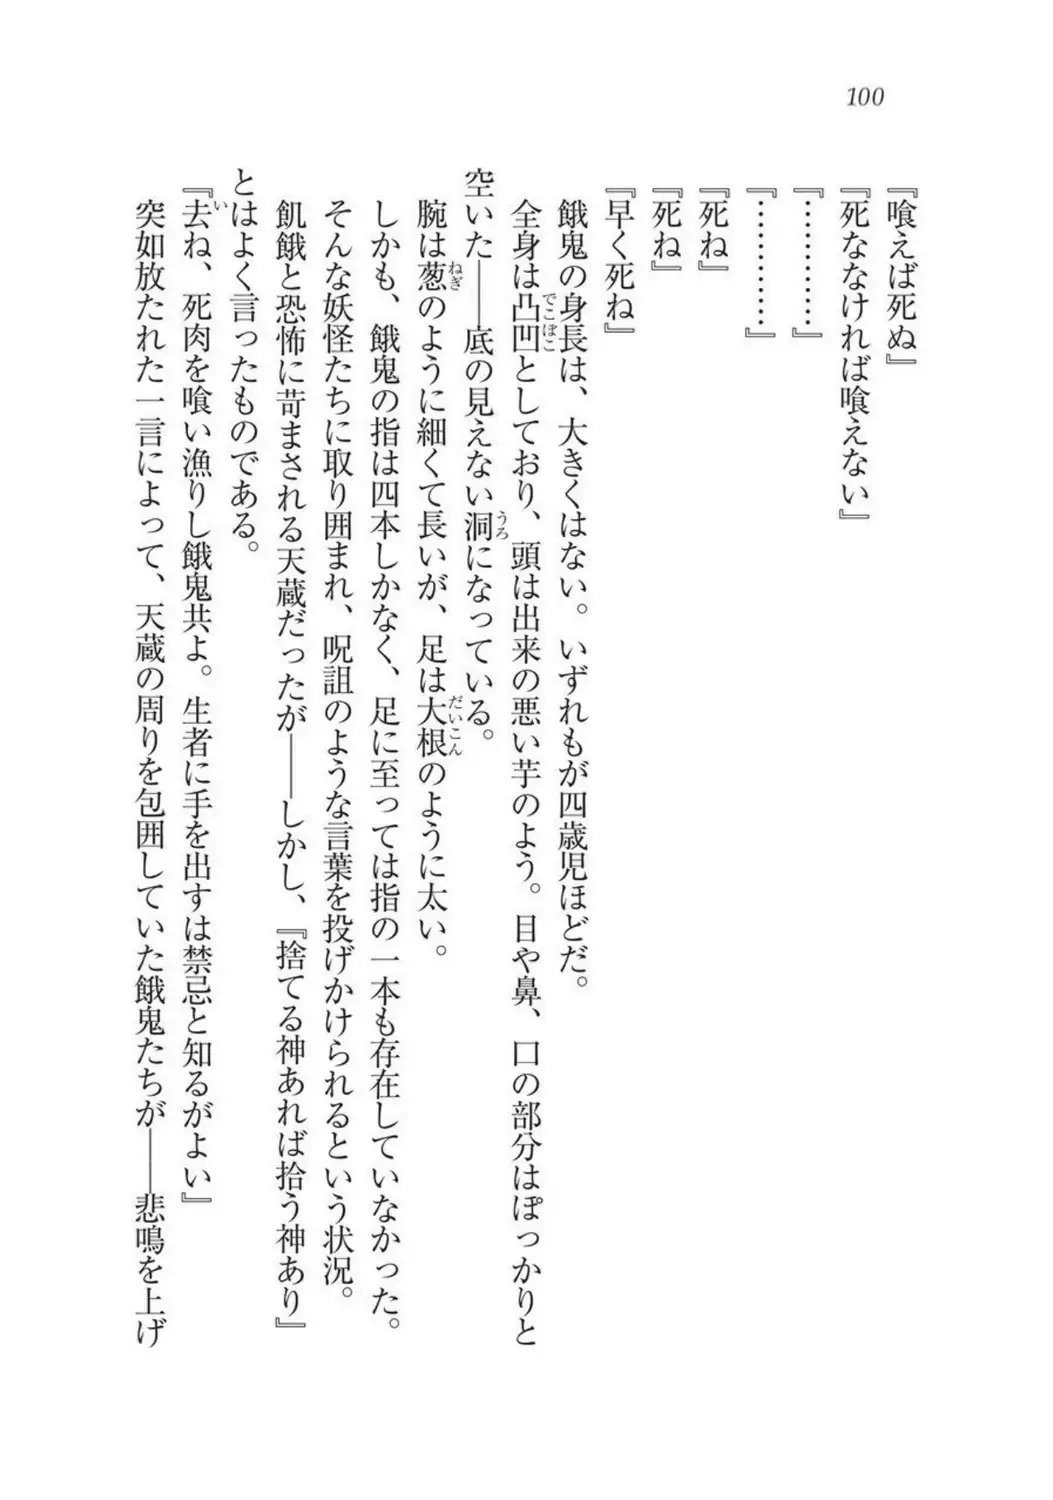 100
『喰えば死ぬ』
『死ななければ喰えない』
『…………』
『…………』
『死ね』
『死ね』
『早く死ね』
餓鬼の身長は、大きくはない。いずれもが四歳児ほどだ。
全身は凸凹としており、頭は出来の悪い芋のよう。目や鼻、口の部分はぽっかりと
空いた――底の見えない洞になっている。
腕は葱のように細くて長いが、足は大根のように太い。
しかも、餓鬼の指は四本しかなく、足に至っては指の一本も存在していなかった。
そんな妖怪たちに取り囲まれ、呪詛のような言葉を投げかけられるという状況。
飢餓と恐怖に苛まされる天蔵だったが――しかし、『捨てる神あれば拾う神あり』
とはよく言ったものである。
『去ね、死肉を喰い漁りし餓鬼共よ。生者に手を出すは禁忌と知るがよい』
突如放たれた一言によって、天蔵の周りを包囲していた餓鬼たちが――悲鳴を上げ